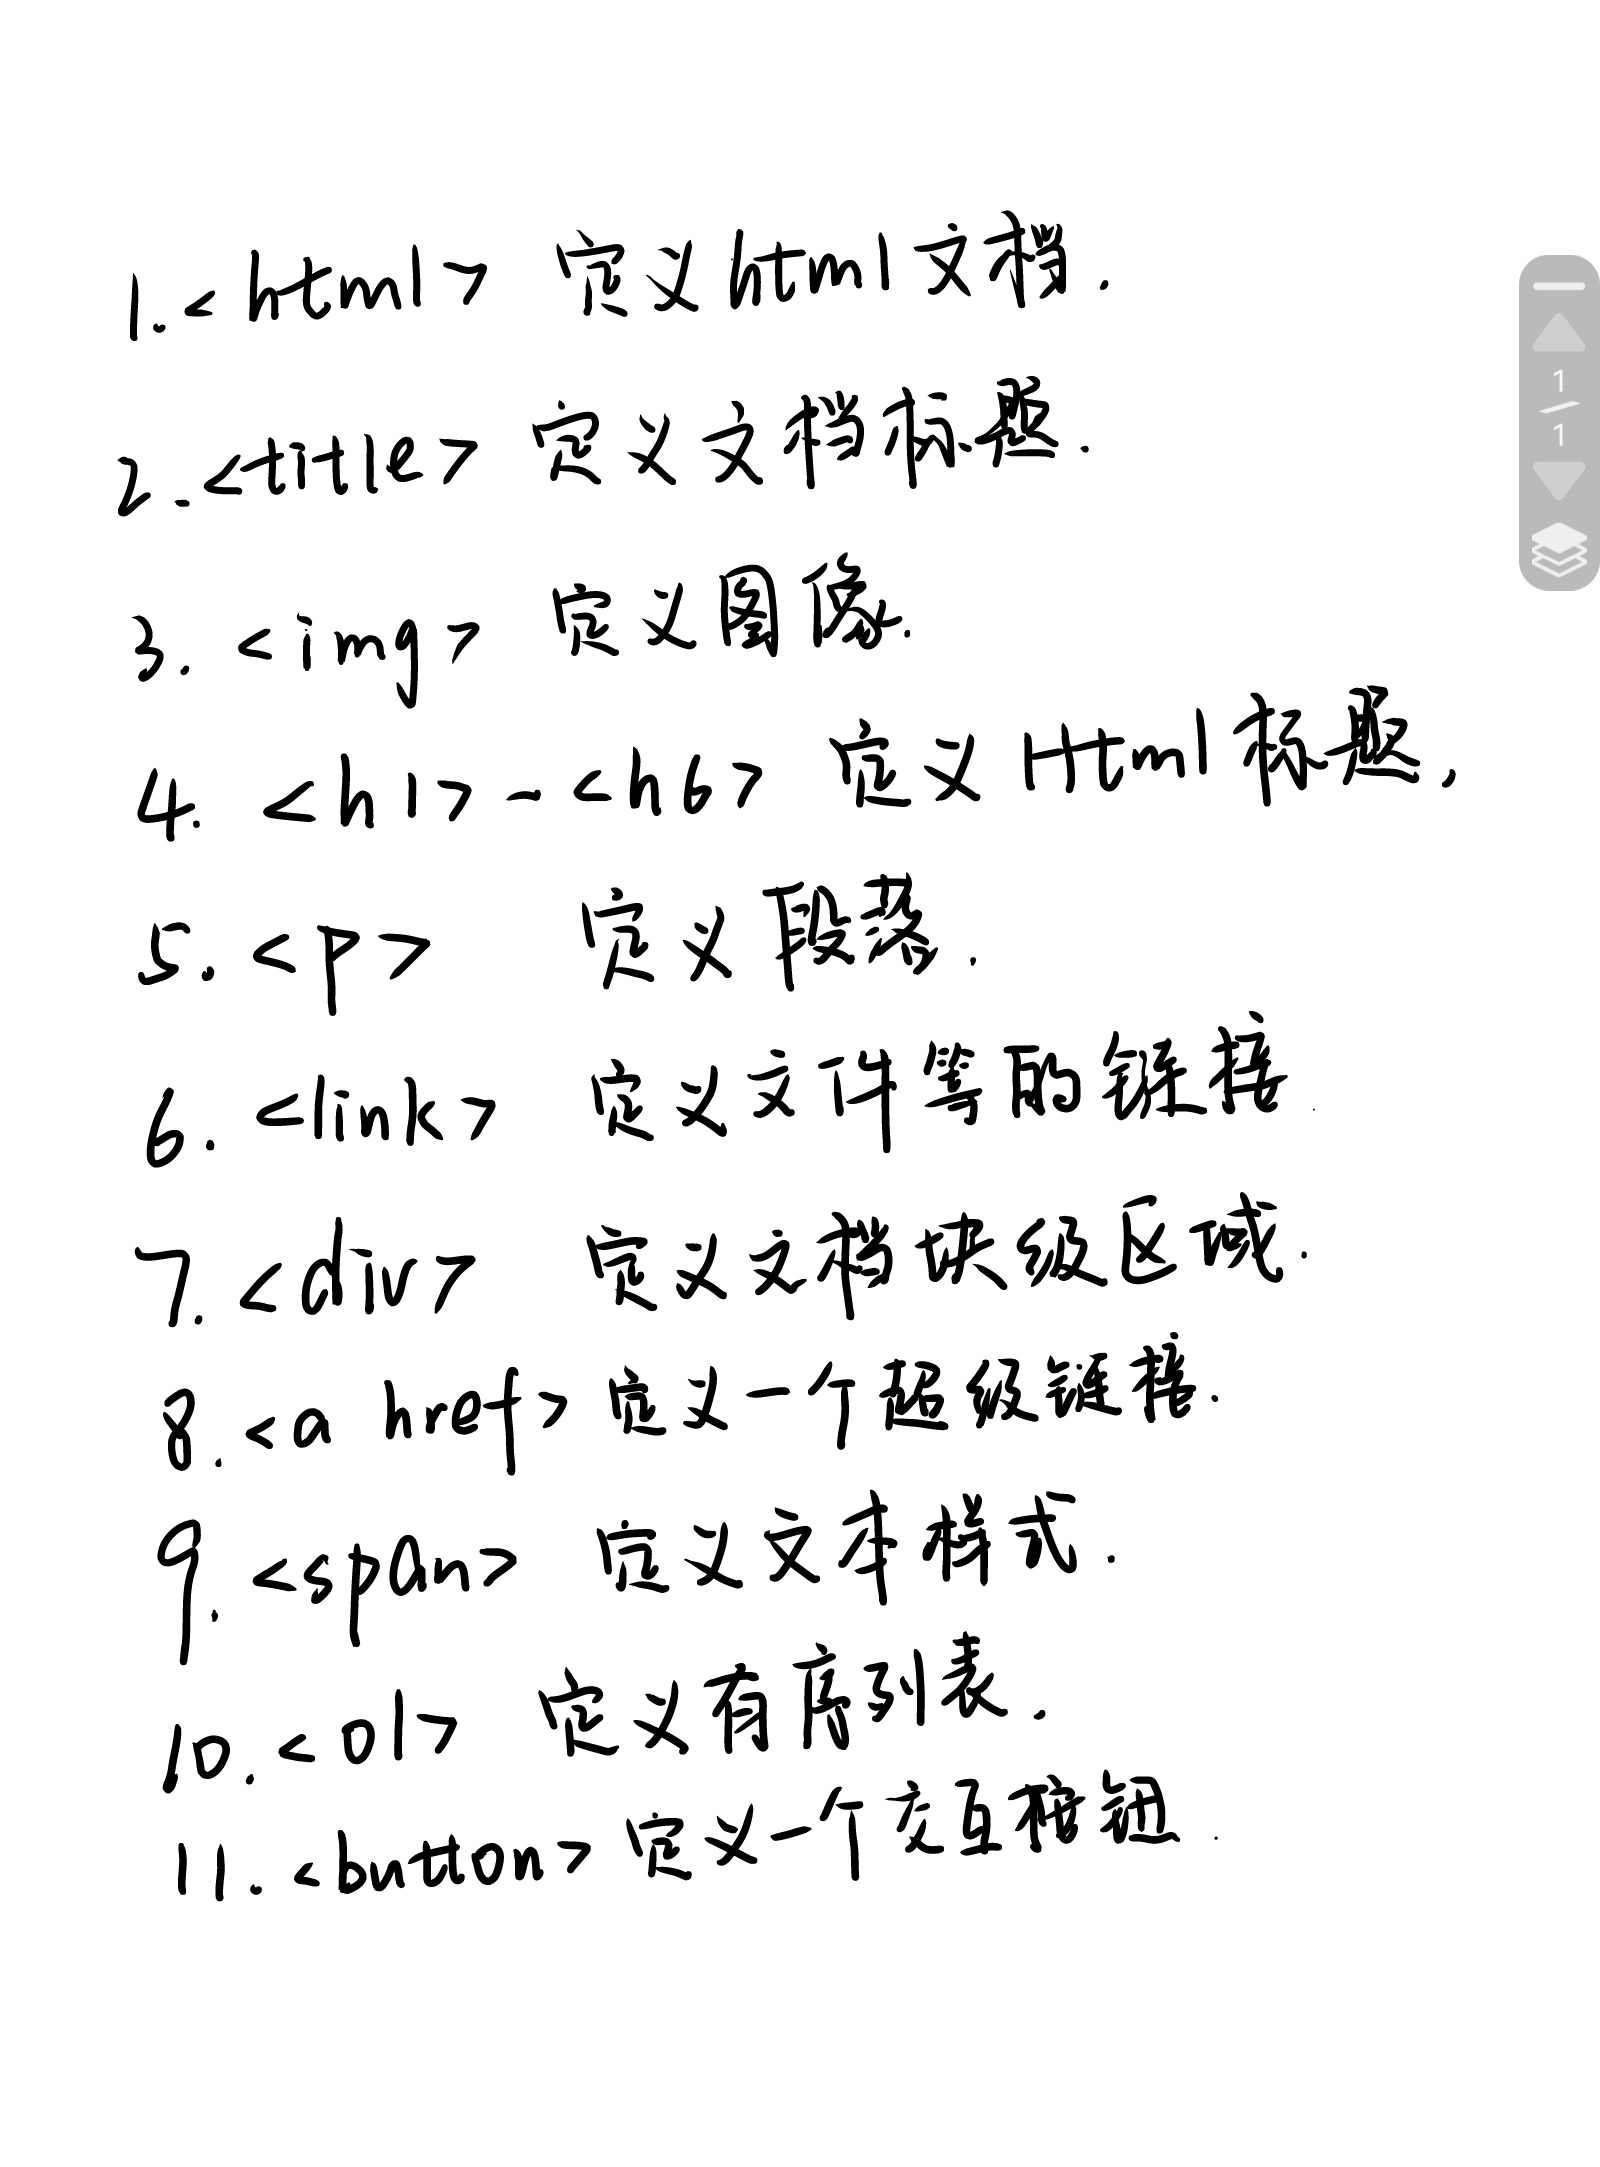 1.<html> 定义html文档.
2.<title> 定义文档标题.
3.<img> 定义图像.
4.<h1>-<h6> 定义Html标题,
5.<p> 定义段落.
6.<link> 定义文件等的链接.
7.<div> 定义文档块级区域.
8.<a href> 定义一个超级链接.
9.<span> 定义文本样式.
10.<ol> 定义有序列表.
11.<button> 定义一个交互按钮.
1
1